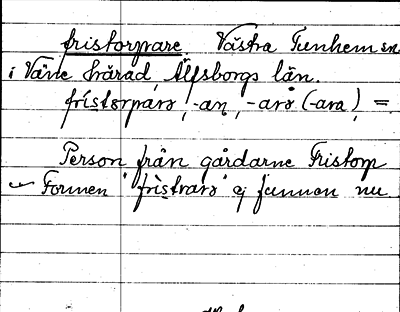 fristorpare. Västra Tunhem sn
i Väne härad, Älfsborgs län.
fristorparə, -an, -arə (-ara), =
Person från gårdarne Fristorp
Formen "fristrarə" ej funnen nu